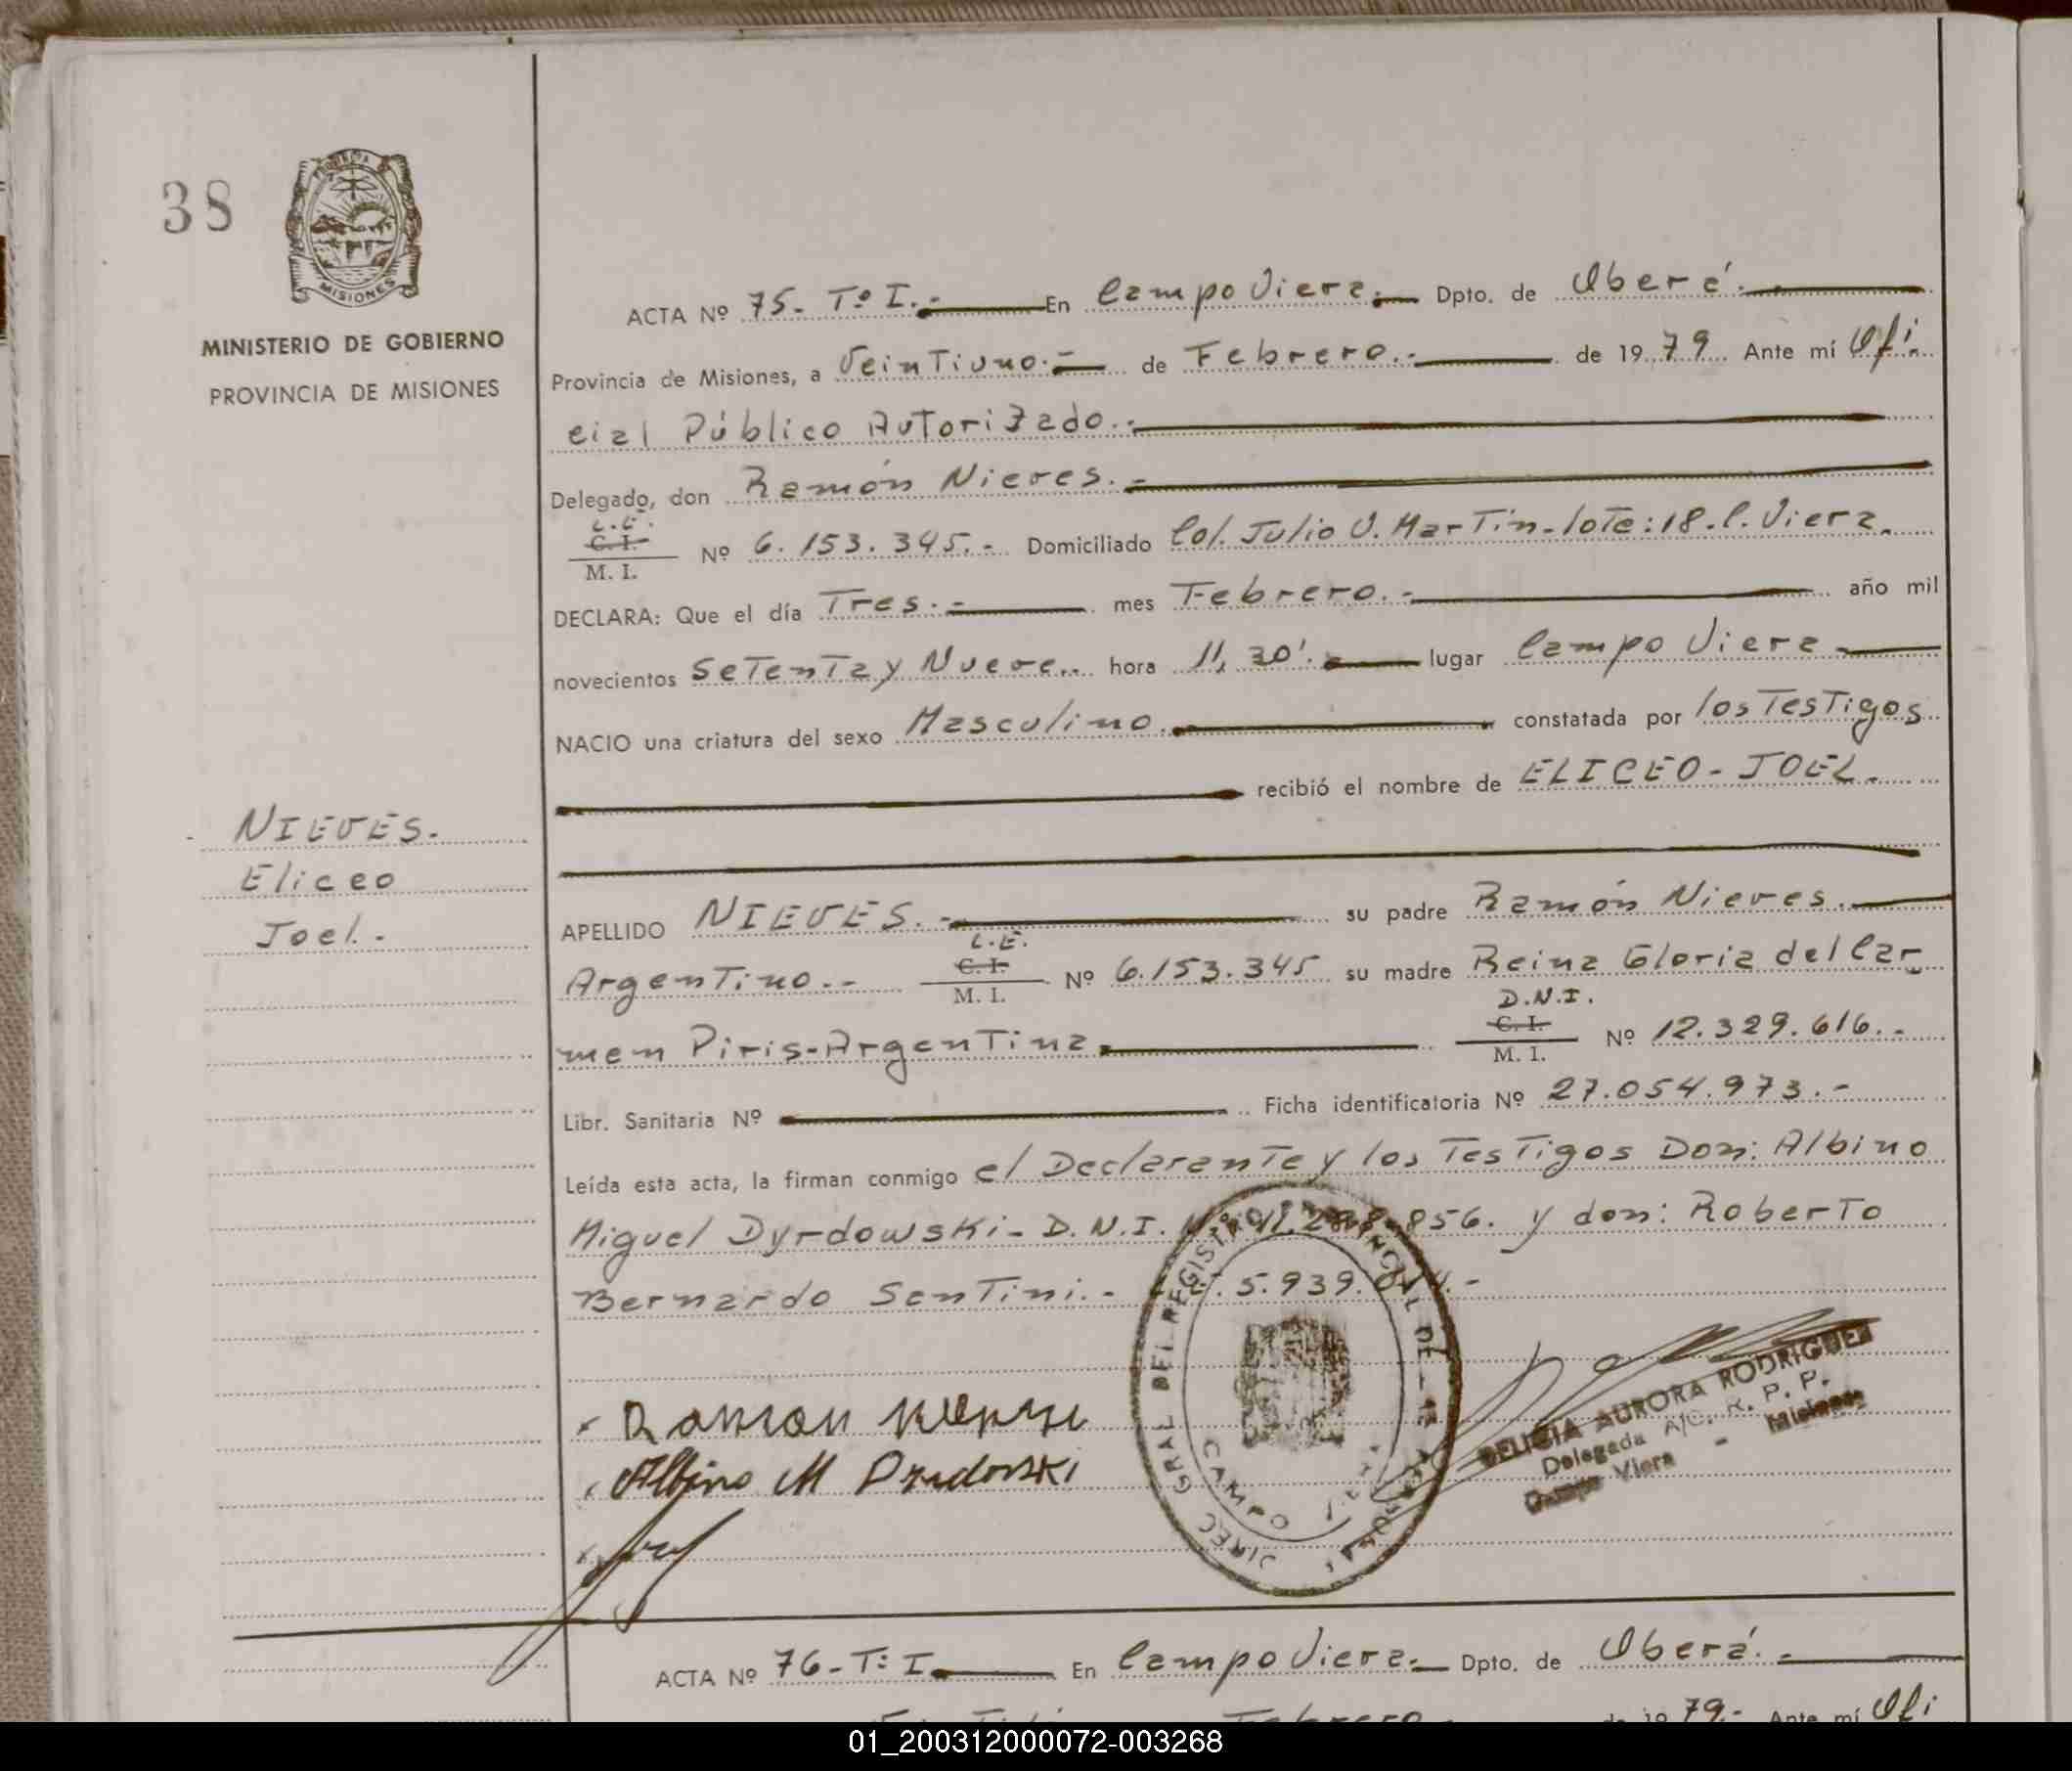 38
PROVINCIA DE
MISIONES
MINISTERIO DE GOBIERNO
PROVINCIA DE MISIONES
ACTA Nº 75- Tº I.- En Campo Viera.- Dpto. de Oberá.-
Provincia de Misiones, a Veintiuno.- de Febrero.- de 1979. Ante mí Ofi
cial Público Autorizado.-
Delegado, don Ramón Nieves.-
L.E.
C. I.
M. I. Nº 6.153.345.- Domiciliado Col. Julio U. Martin-lote:18-C. Viera.
DECLARA: Que el día Tres.- mes Febrero.- año mil
novecientos Setenta y Nueve.. hora 11,30'. lugar Campo Viera
NACIO una criatura del sexo Masculino. constatada por los Testigos
recibió el nombre de ELICEO-JOEL.
NIEVES.
Eliceo
Joel.-
APELLIDO NIEVES.- su padre Ramón Nieves.
Argentino.- L.E. C. I. M. I. Nº 6.153.345 su madre Reina Gloria del Car
men Piris-Argentina. D.N.I. C. I. M. I. Nº 12.329.616.-
Libr. Sanitaria Nº Ficha identificatoria Nº 27.054.973.-
Leída esta acta, la firman conmigo el Declarante y los Testigos Don: Albino
Miguel Dyrdowski- D.N.I. Nº 11. 856. y don: Roberto
Bernardo Santini.- 5.939.
DIREC GRAL DEL REGISTRO PROVINCIAL DE
CAMPO
DELICIA AURORA RODRIGUEZ
Delegada A/C. R. P. P.
Campo Viera - Misiones
Albino M
ACTA Nº 76-Tº I. En Campo Viera.- Dpto. de Oberá.-
Febrero de 1979.- Ante mí Ofi
01_200312000072-003268